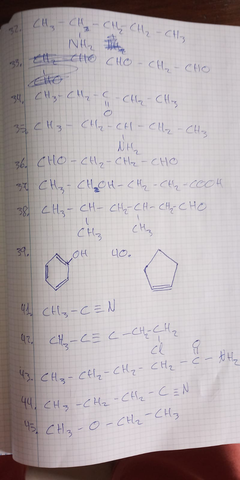 32. CH₃ - CH₂ - CH₂ - CH₂ - CH₃
NH₂
33. CHO - CH₂ - CHO
34. CH₃ - CH₂ - C - CH₂ - CH₃
O
35. CH₃ - CH₂ - CH - CH₂ - CH₃
NH₂
36. CHO - CH₂ - CH₂ - CHO
37. CH₃ - CH₂OH - CH₂ - CH₂ - COOH
38. CH₃ - CH - CH₂ - CH - CH₂ - CHO
CH₃ CH₃
39. OH 40.
41. CH₃ - C ≡ N
42. CH₃ - C ≡ C - CH₂ - CH₂
Cl
O
43. CH₃ - CH₂ - CH₂ - CH₂ - C - NH₂
44. CH₃ - CH₂ - CH₂ - C ≡ N
45. CH₃ - O - CH₂ - CH₃